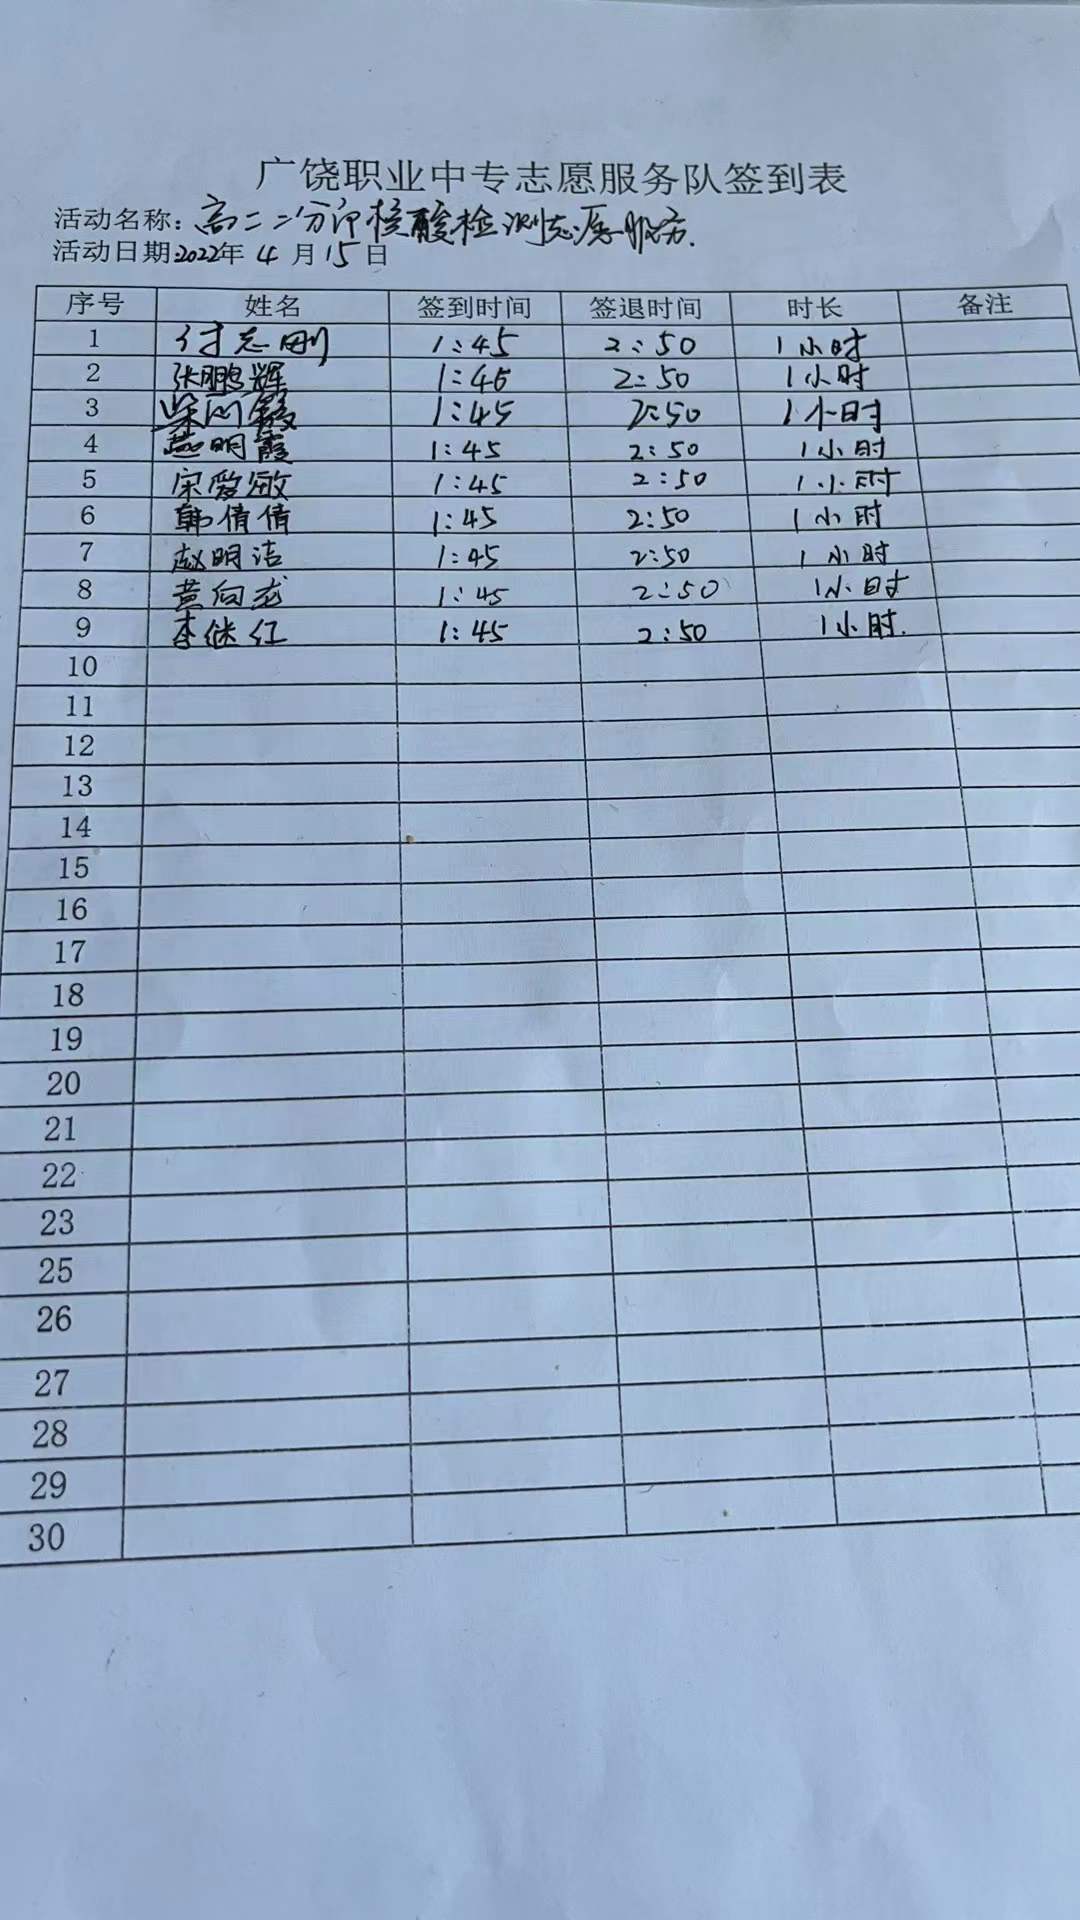 广饶职业中专志愿服务队签到表
活动名称：高二二分部核酸检测志愿服务.
活动日期:2022年 4 月 15 日
序号 姓名 签到时间 签退时间 时长 备注
1 付志刚 1:45 2:50 1小时
2 张鹏辉 1:46 2:50 1小时
3 1:45 2:50 1小时
4 燕明霞 1:45 2:50 1小时
5 宋爱敏 1:45 2:50 1小时
6 韩倩倩 1:45 2:50 1小时
7 赵明洁 1:45 2:50 1小时
8 黄向龙 1:45 2:50 1小时
9 李继红 1:45 2:50 1小时.
10
11
12
13
14
15
16
17
18
19
20
21
22
23
25
26
27
28
29
30